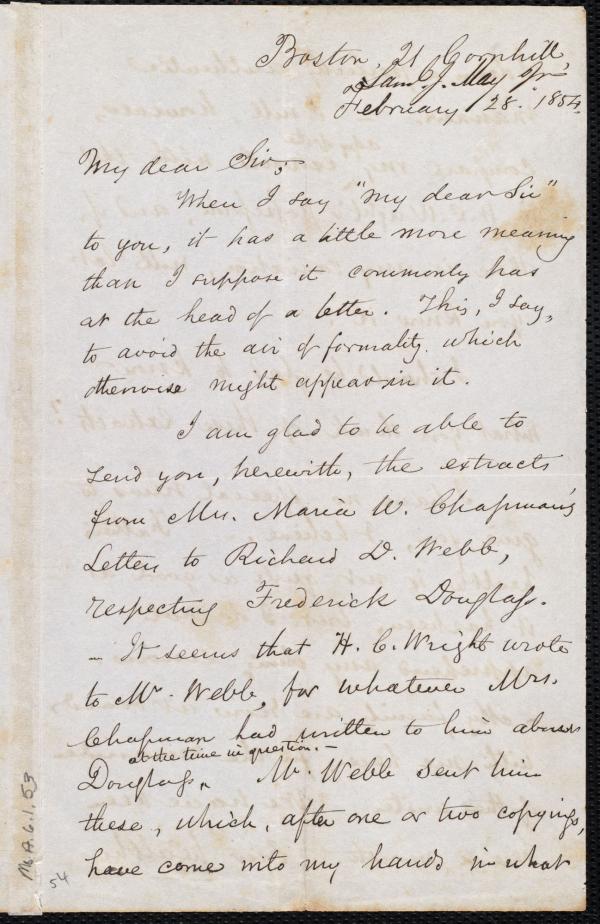 Boston, 21 Cornhill
Saml. J. May Jr.
February 28. 1854.
My dear Sir;
When I say "my dear Sir"
to you, it has a little more meaning
than I suppose it commonly has
at the head of a letter. This, I say,
to avoid the air of formality which
otherwise might appear in it.
I am glad to be able to
send you, herewith, the extracts
from Mrs. Maria W. Chapman's
Letters to Richard D. Webb,
respecting Frederick Douglass.
— It seems that H. C. Wright wrote
to Mr. Webb, for whatever Mrs.
Chapman had written to him about
at the time in question. —
Douglass, Mr. Webb sent him
these, which, after one or two copyings,
have come into my hands in what
Ms. A. 6. 1. 53
54